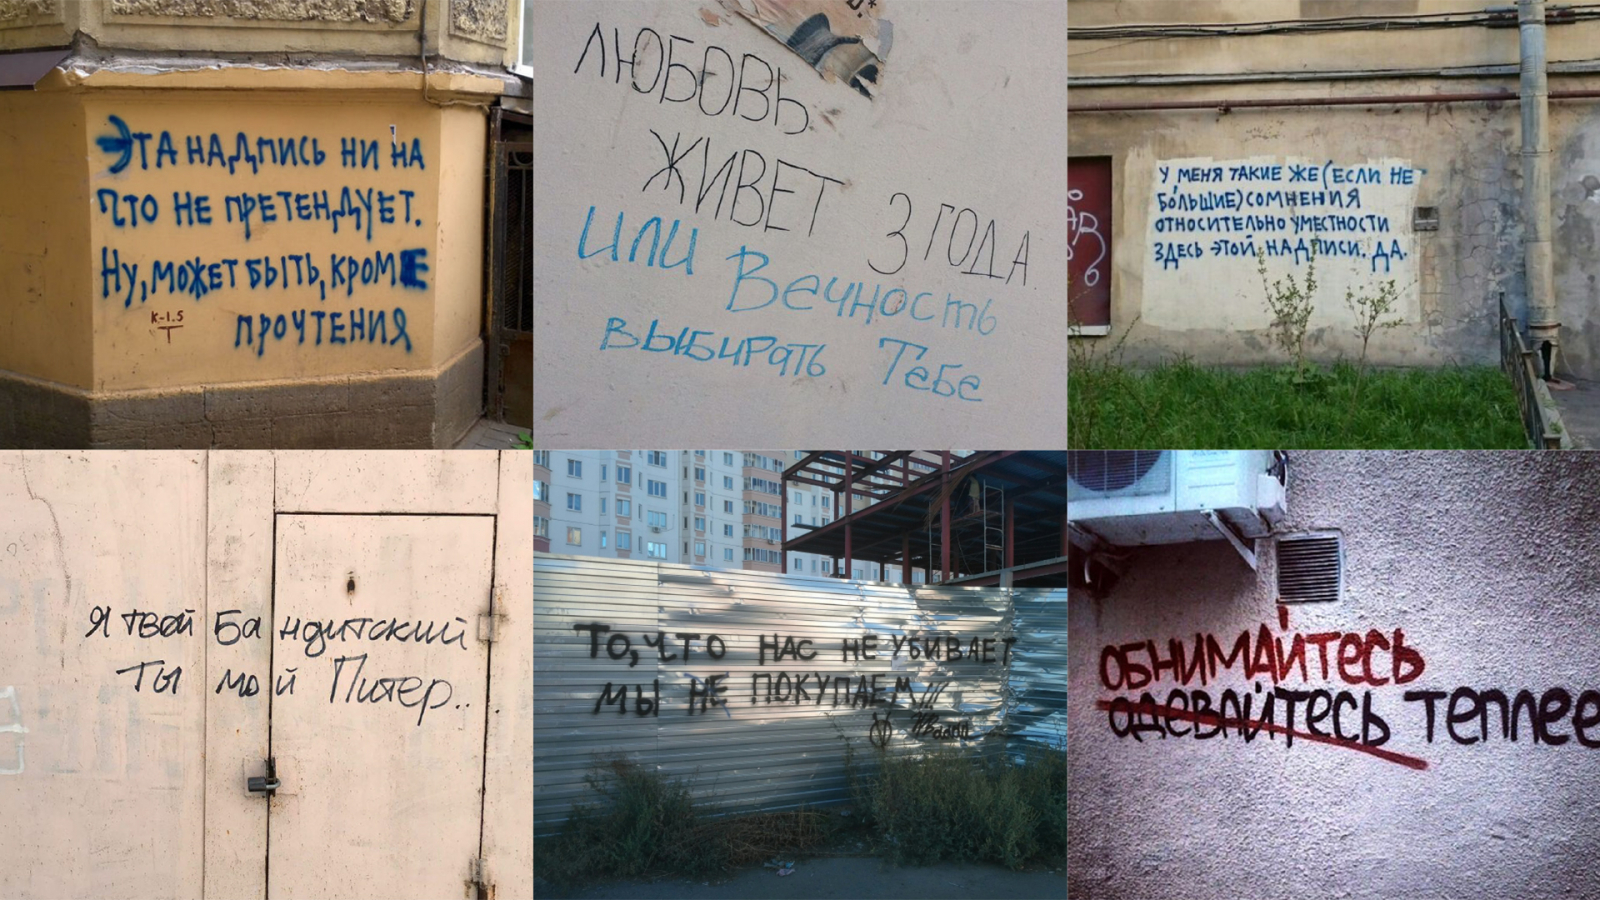 Эта надпись ни на
что не претендует.
Ну, может быть, кроме
прочтения
К-1.5
Т
ЛЮБОВЬ
ЖИВЕТ 3 ГОДА
или Вечность
выбирать Тебе
У МЕНЯ ТАКИЕ ЖЕ (ЕСЛИ НЕ
БО́ЛЬШИЕ) СОМНЕНИЯ
ОТНОСИТЕЛЬНО УМЕСТНОСТИ
ЗДЕСЬ ЭТОЙ НАДПИСИ. ДА.
Я твой Бандитский
Ты мой Питер...
ТО, ЧТО НАС НЕ УБИВАЕТ
МЫ НЕ ПОКУПАЕМ!!!
ОБНИМАЙТЕСЬ
ОДЕВАЙТЕСЬ ТЕПЛЕЕ